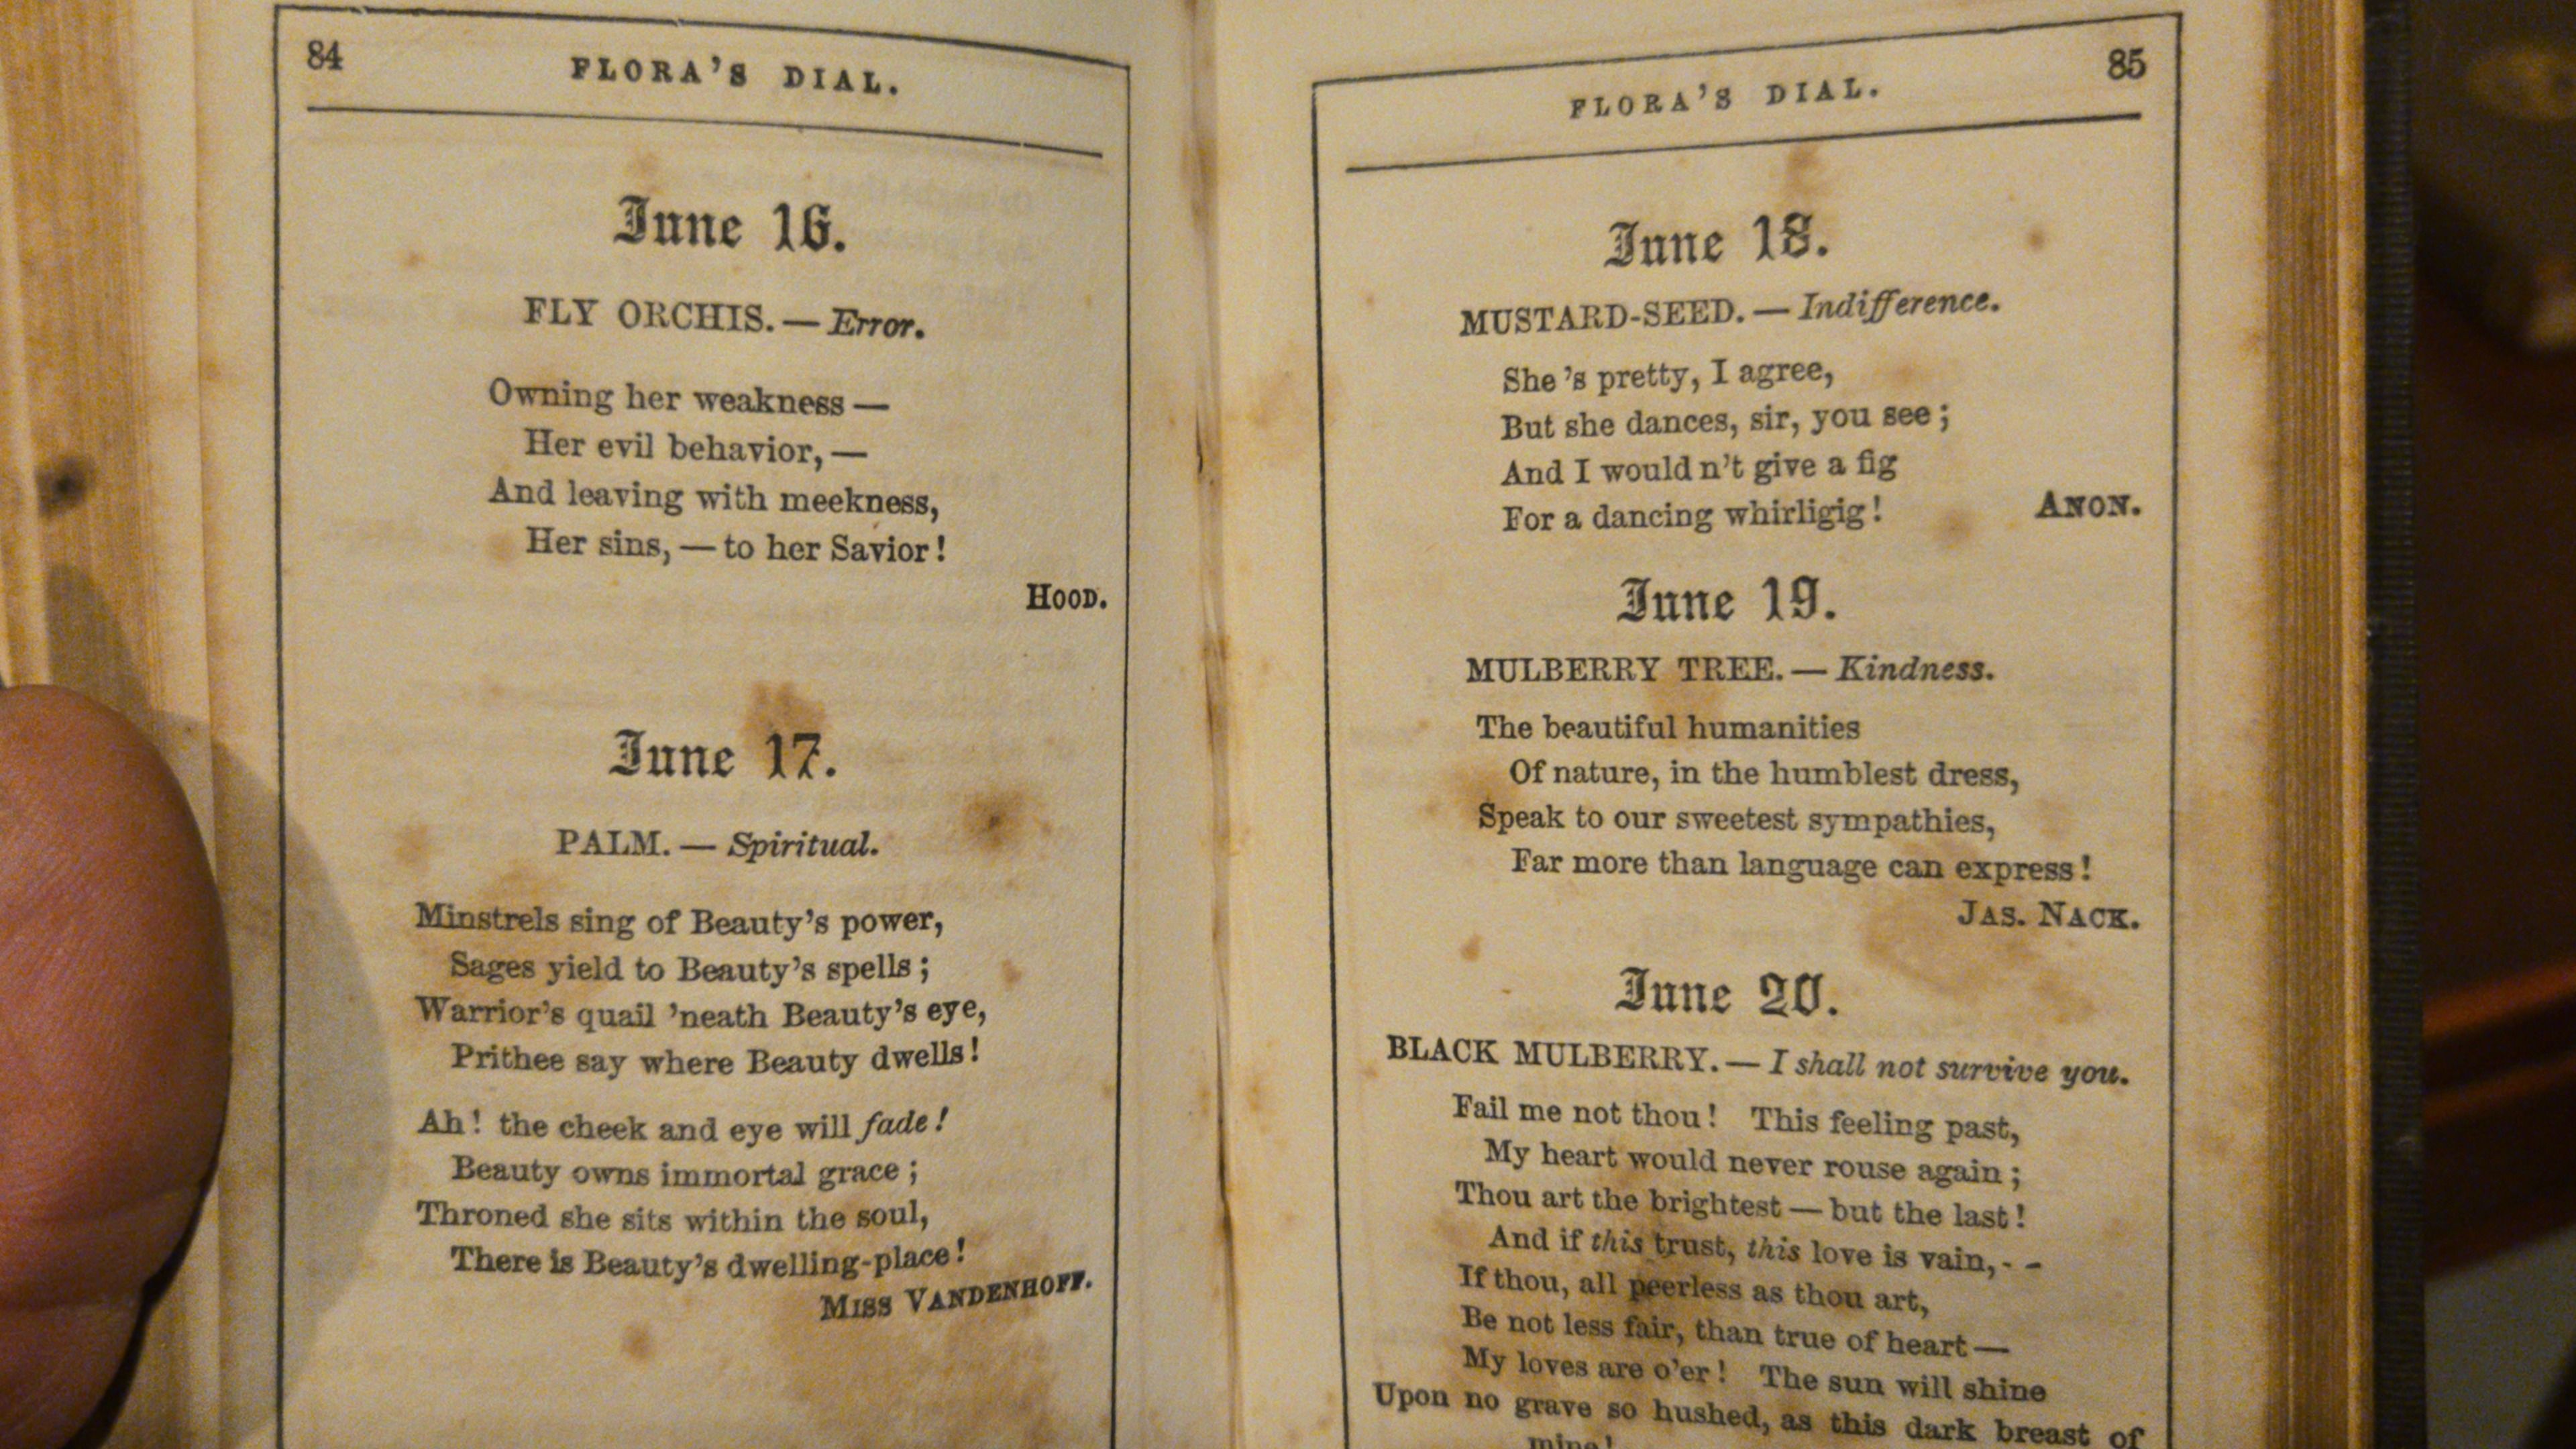 84
FLORA'S DIAL.
June 16.
FLY ORCHIS. — Error.
Owning her weakness —
Her evil behavior, —
And leaving with meekness,
Her sins, — to her Savior!
HOOD.
June 17.
PALM. — Spiritual.
Minstrels sing of Beauty's power,
Sages yield to Beauty's spells;
Warrior's quail 'neath Beauty's eye,
Prithee say where Beauty dwells!
Ah! the cheek and eye will fade!
Beauty owns immortal grace;
Throned she sits within the soul,
There is Beauty's dwelling-place!
MISS VANDENHOFF.
FLORA'S DIAL.
85
June 18.
MUSTARD-SEED. — Indifference.
She 's pretty, I agree,
But she dances, sir, you see;
And I would n't give a fig
For a dancing whirligig!
ANON.
June 19.
MULBERRY TREE. — Kindness.
The beautiful humanities
Of nature, in the humblest dress,
Speak to our sweetest sympathies,
Far more than language can express!
JAS. NACK.
June 20.
BLACK MULBERRY. — I shall not survive you.
Fail me not thou! This feeling past,
My heart would never rouse again;
Thou art the brightest — but the last!
And if this trust, this love is vain, - -
If thou, all peerless as thou art,
Be not less fair, than true of heart —
My loves are o'er! The sun will shine
Upon no grave so hushed, as this dark breast of
mine!